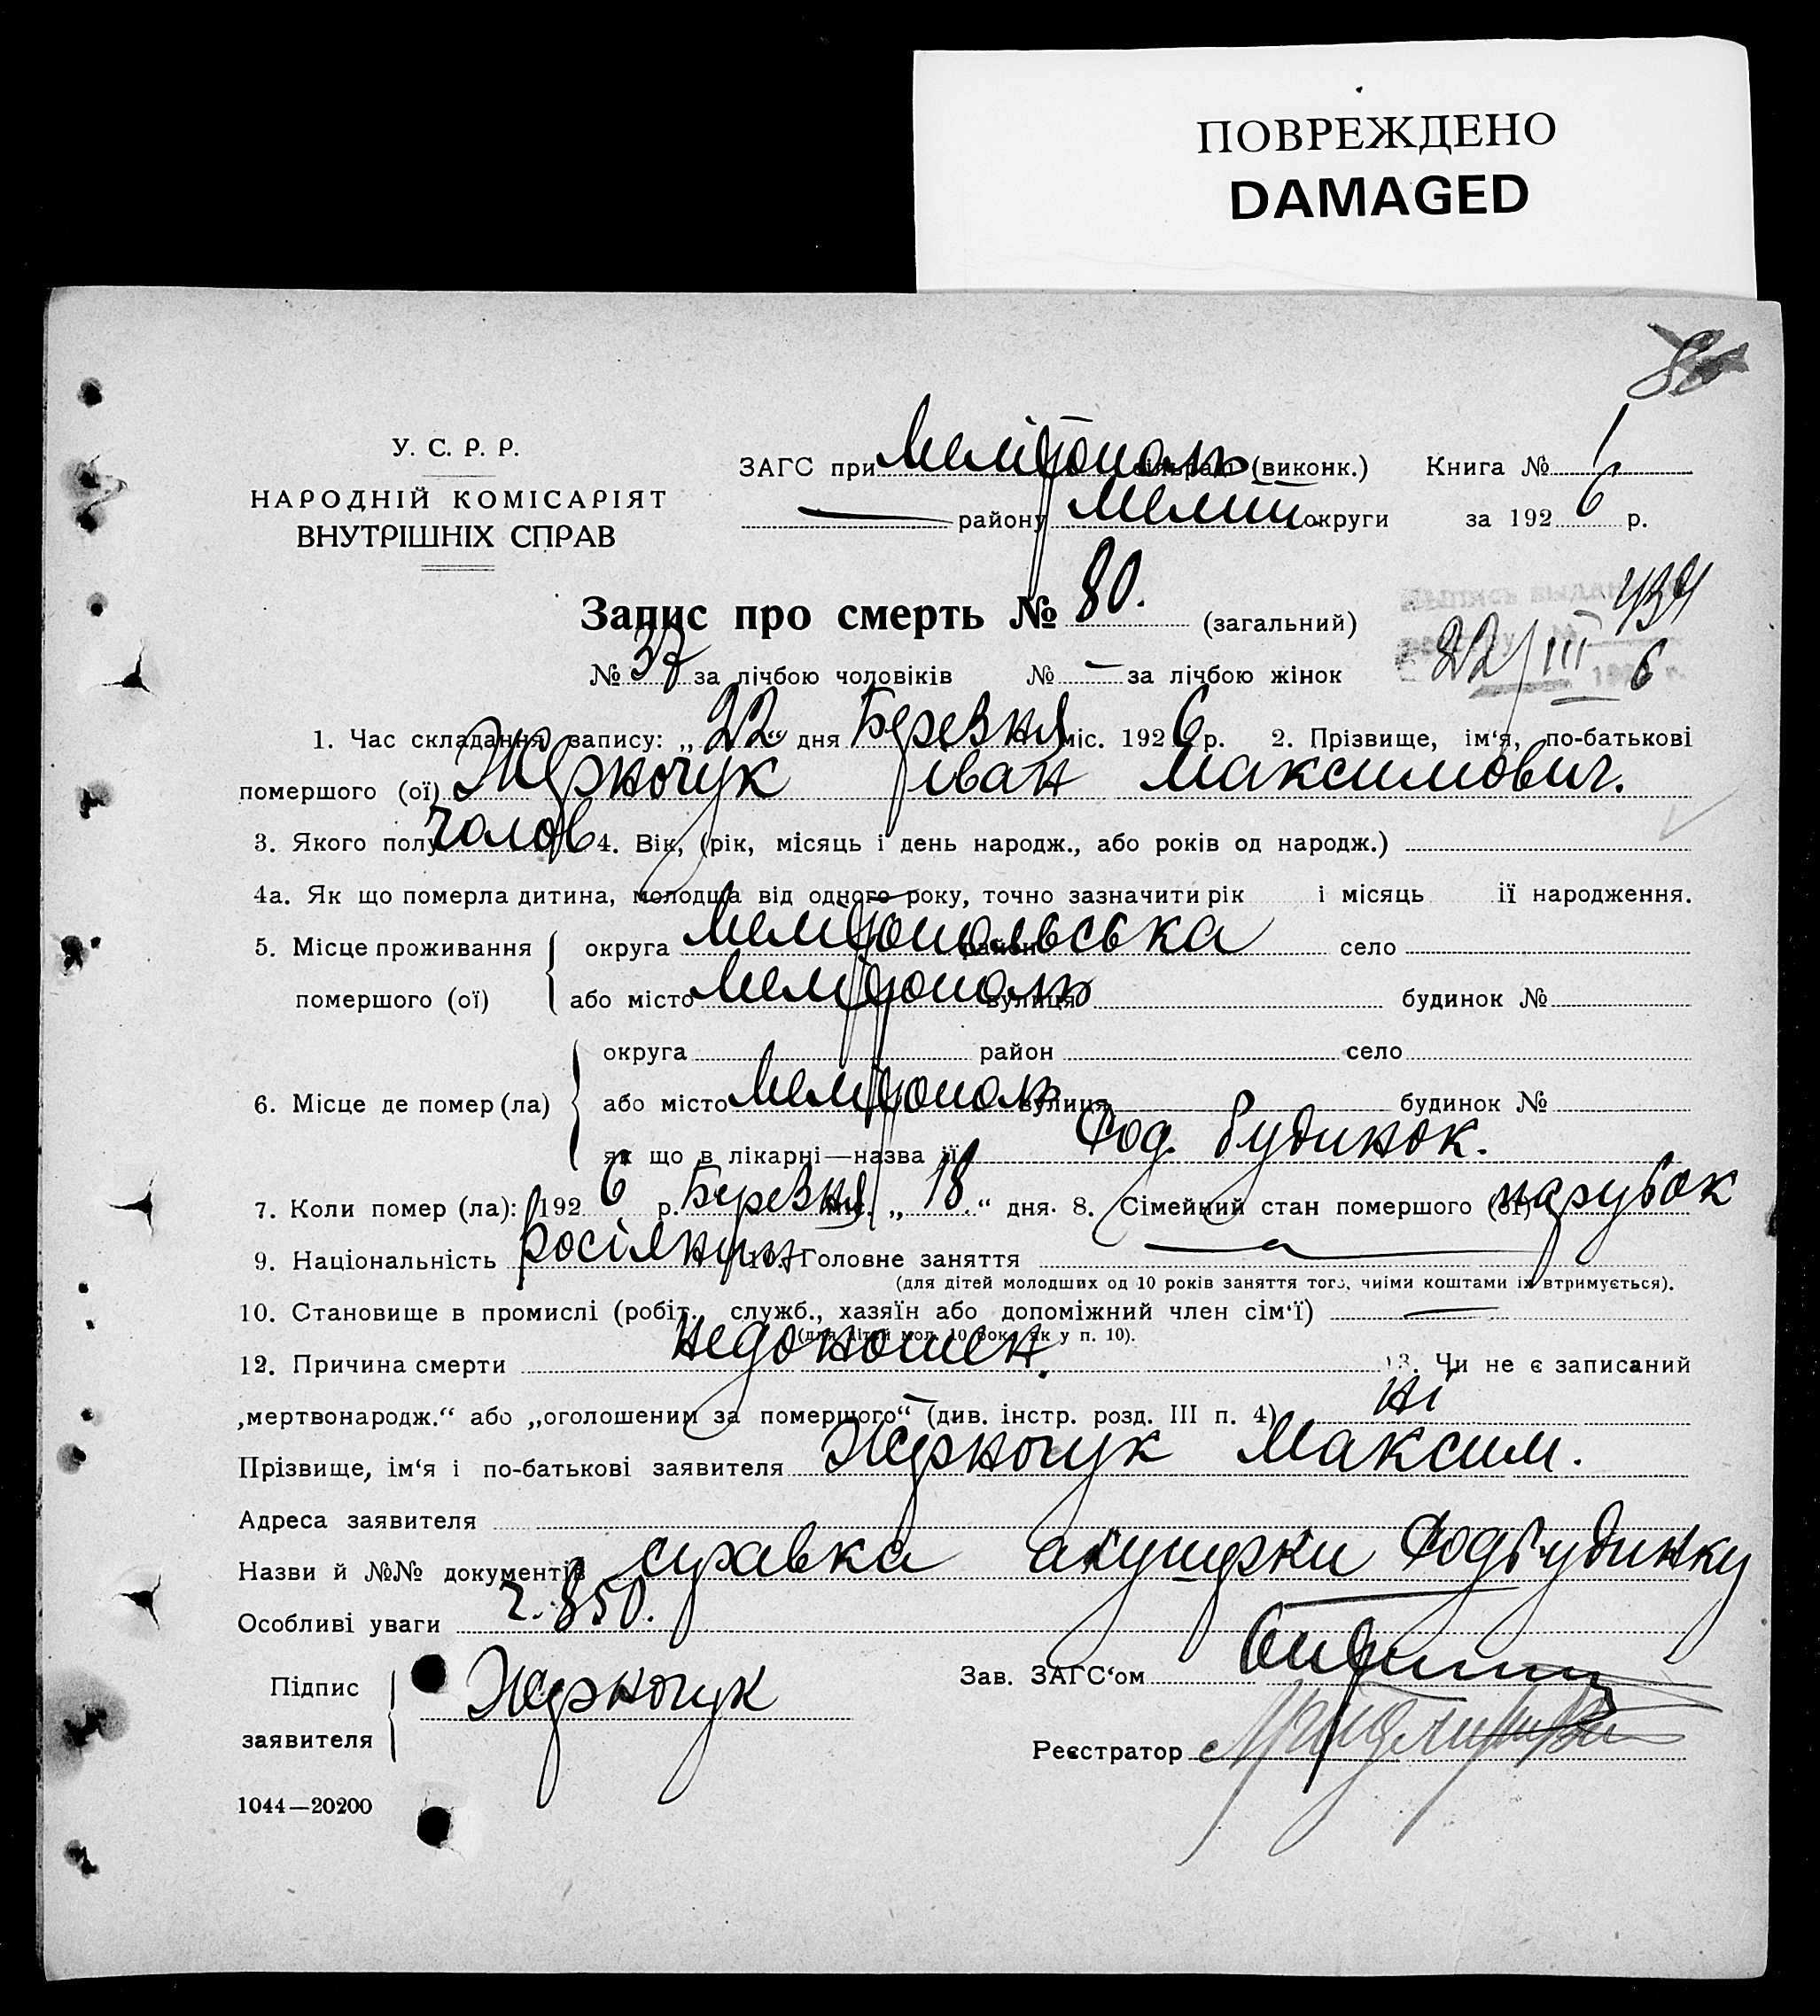 ПОВРЕЖДЕНО
DAMAGED
80
У. С. Р. Р.
НАРОДНІЙ КОМІСАРІЯТ
ВНУТРІШНІХ СПРАВ
ЗАГС при Мелітополь сільраді (виконк.) Книга № 1
району Меліт округи за 1926 р.
Запис про смерть № 80. (загальний)
№ 37 за лічбою чоловіків № — за лічбою жінок
434
22/III 6
1. Час складання запису: „22“ дня Березня міс. 1926 р. 2. Прізвище, ім‘я, по-батькові
помершого (ої) Жерночук Іван Максимович.
3. Якого полу чолов 4. Вік, (рік, місяць і день народж., або років од народж.)
4а. Як що померла дитина, молодша від одного року, точно зазначити рік і місяць її народження.
5. Місце проживання помершого (ої) округа Мелітопольська район село
або місто Мелітополь вулиця будинок №
6. Місце де помер (ла) округа район село
або місто Мелітополь вулиця будинок №
як що в лікарні—назва її Род. будинок.
7. Коли помер (ла): 1926 р. Березня міс. „18“ дня. 8. Сімейний стан помершого (ої) парубок
9. Національність росіянин 10. Головне заняття —
(для дітей молодших од 10 років заняття того, чиїми коштами їх втримується).
10. Становище в промислі (робіт., служб., хазяїн або допоміжний член сім‘ї) —
(для дітей мол. 10 рок. як у п. 10).
12. Причина смерти недоношен. 13. Чи не є записаний
„мертвонародж.“ або „оголошеним за помершого“ (див. інстр. розд. III п. 4) ні
Прізвище, ім‘я і по-батькові заявителя Жерночук Максим.
Адреса заявителя
Назви й №№ документів справка акушерки Родбудинку
Особливі уваги ч. 850.
Підпис заявителя Жерночук
Зав. ЗАГС‘ом
Реєстратор
1044—20200